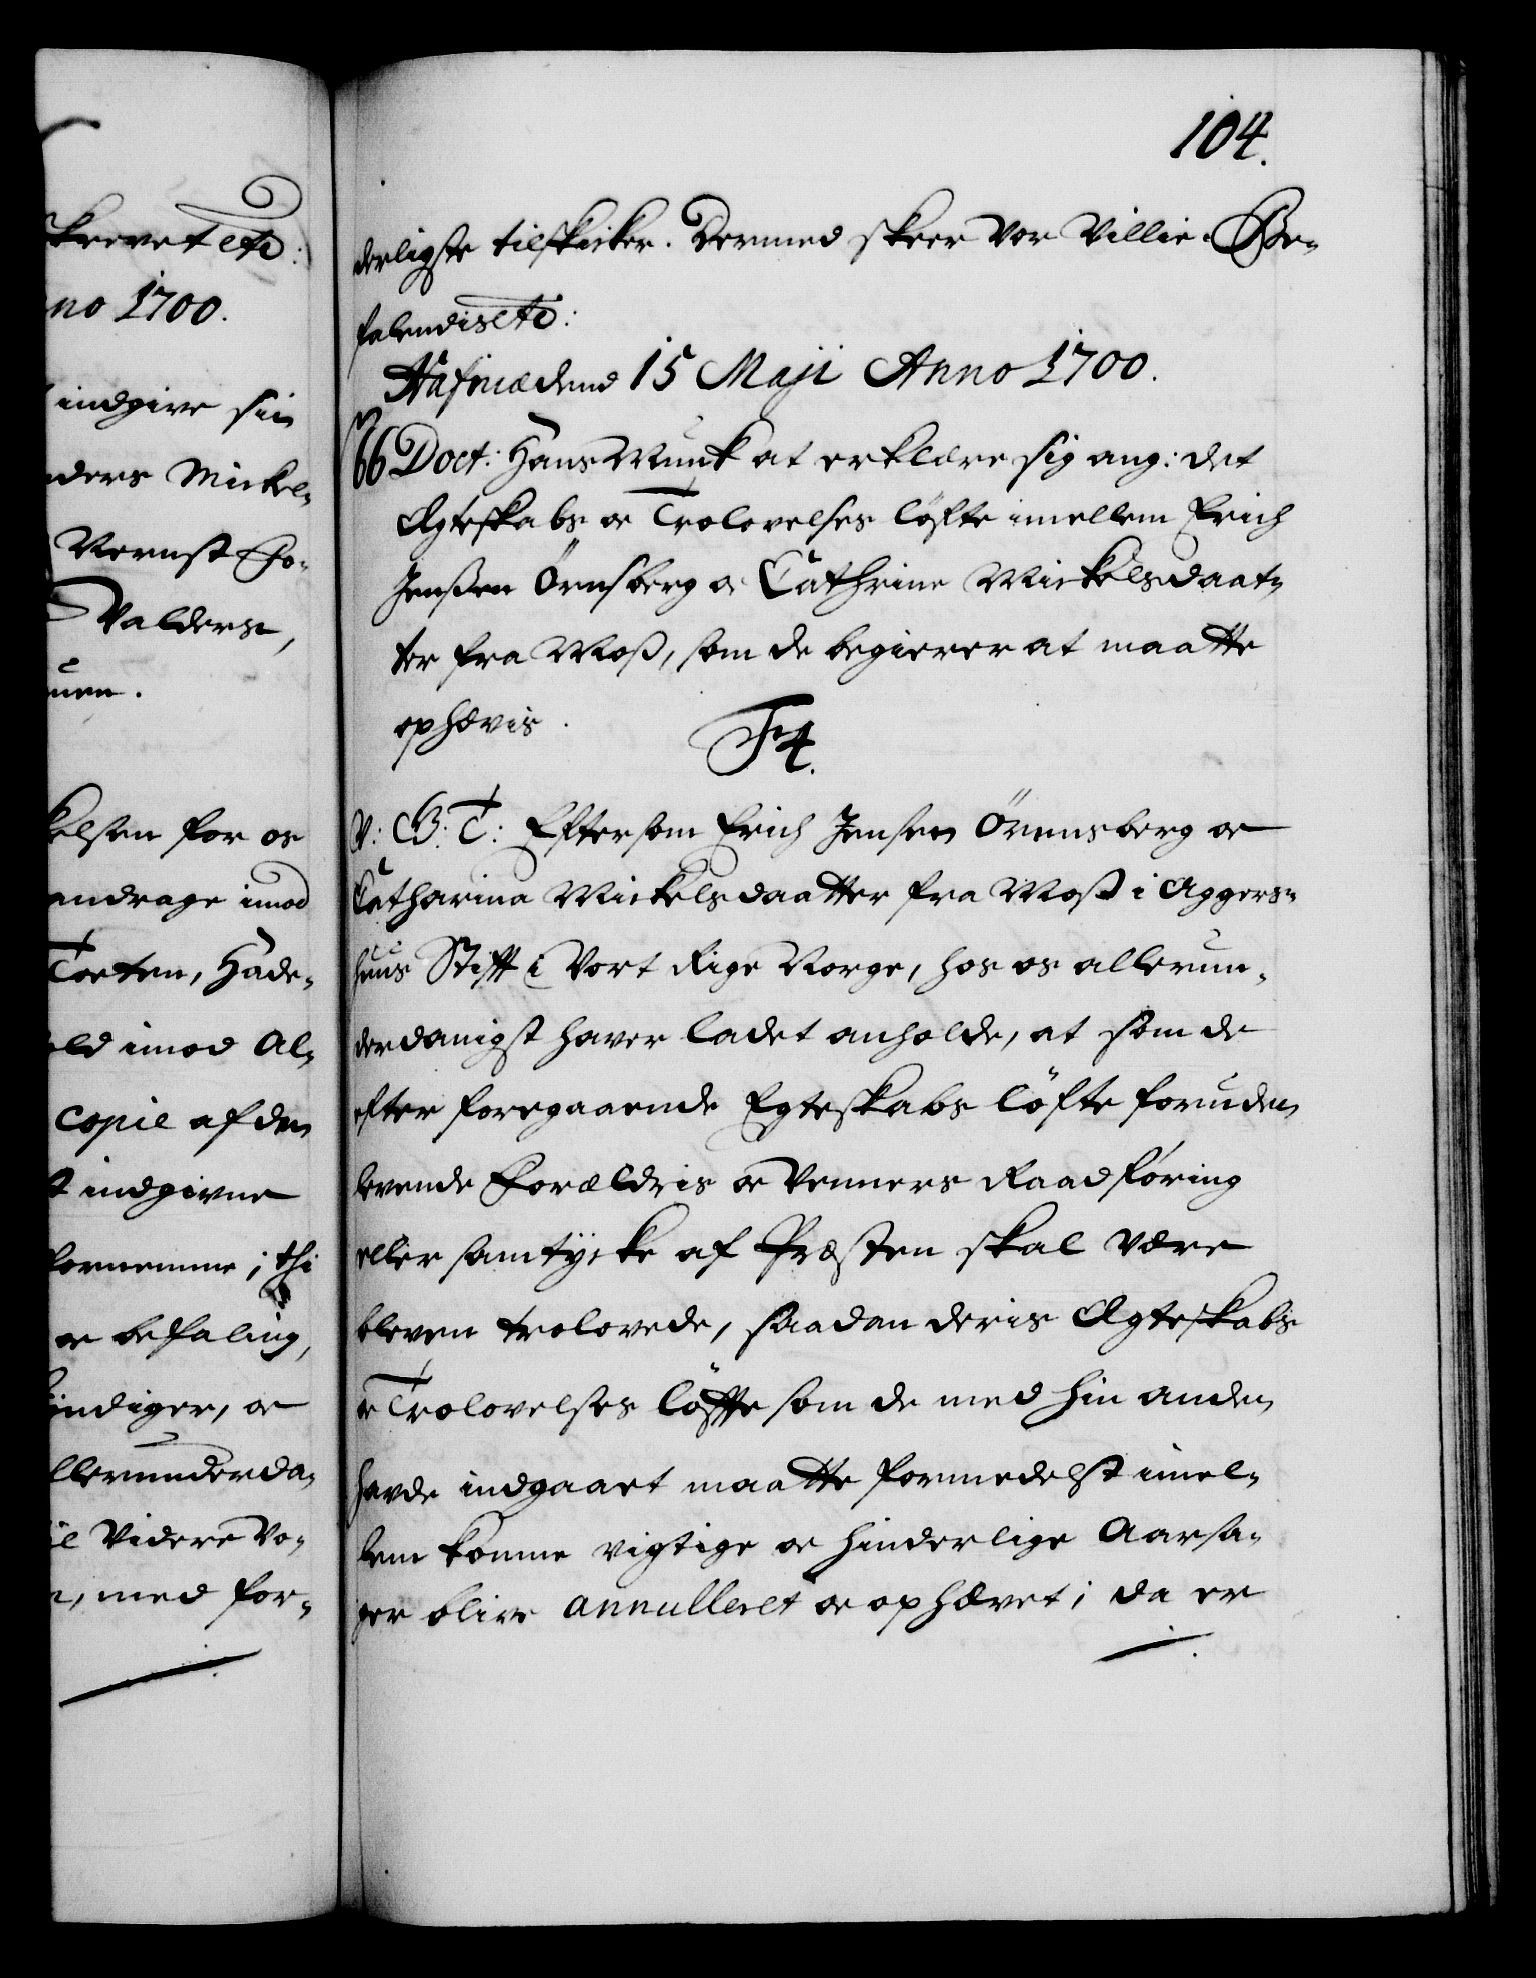 104.
skrevet etc:
nno 1700.
indgive sin
nders Mickel-
Valders,
uen.
kelsen for os
andrage imod
Toten, Hade-
old imod Al-
Copie af den
t indgivne
fornemme; thi
oc befaling,
yndiger, oc
llerunderda-
Videre Vo-
n, med for-
derligste tilskicker. Dermed skeer Vor Villie. Be-
falendis etc:
Hafniæ dend 15 Maji Anno 1700.
66 Doct: Hans Munk at erklære sig ang: det
Ægteskabs oc Trolovelses løfte imellem Erich
Jenßen Örnsberg oc Cathrine Mickelsdaat-
ter fra Moß, som de begierer at maatte
ophævis.
F4.
V: G: T: Eftersom Erich Jensen Örnnsberg oc
Catharina Mickelsdaatter fra Moß i Aggers-
huus Stift i Vort Rige Norge, hos os allerun-
derdanigst haver ladet anholde, at som de
efter foregaaende Egteskabs løfte foruden
levende Forældris oc Venners Raadføring
eller samtycke af Præsten skal være
bleven trolovede, saadan deris Ægteskabs
oc Trolovelses løffte som de med hin anden
havde indgaaet maatte formedelst imel-
lem komne vigtige oc hinderlige Aarsa-
ger blive annulleret oc ophævet; da er